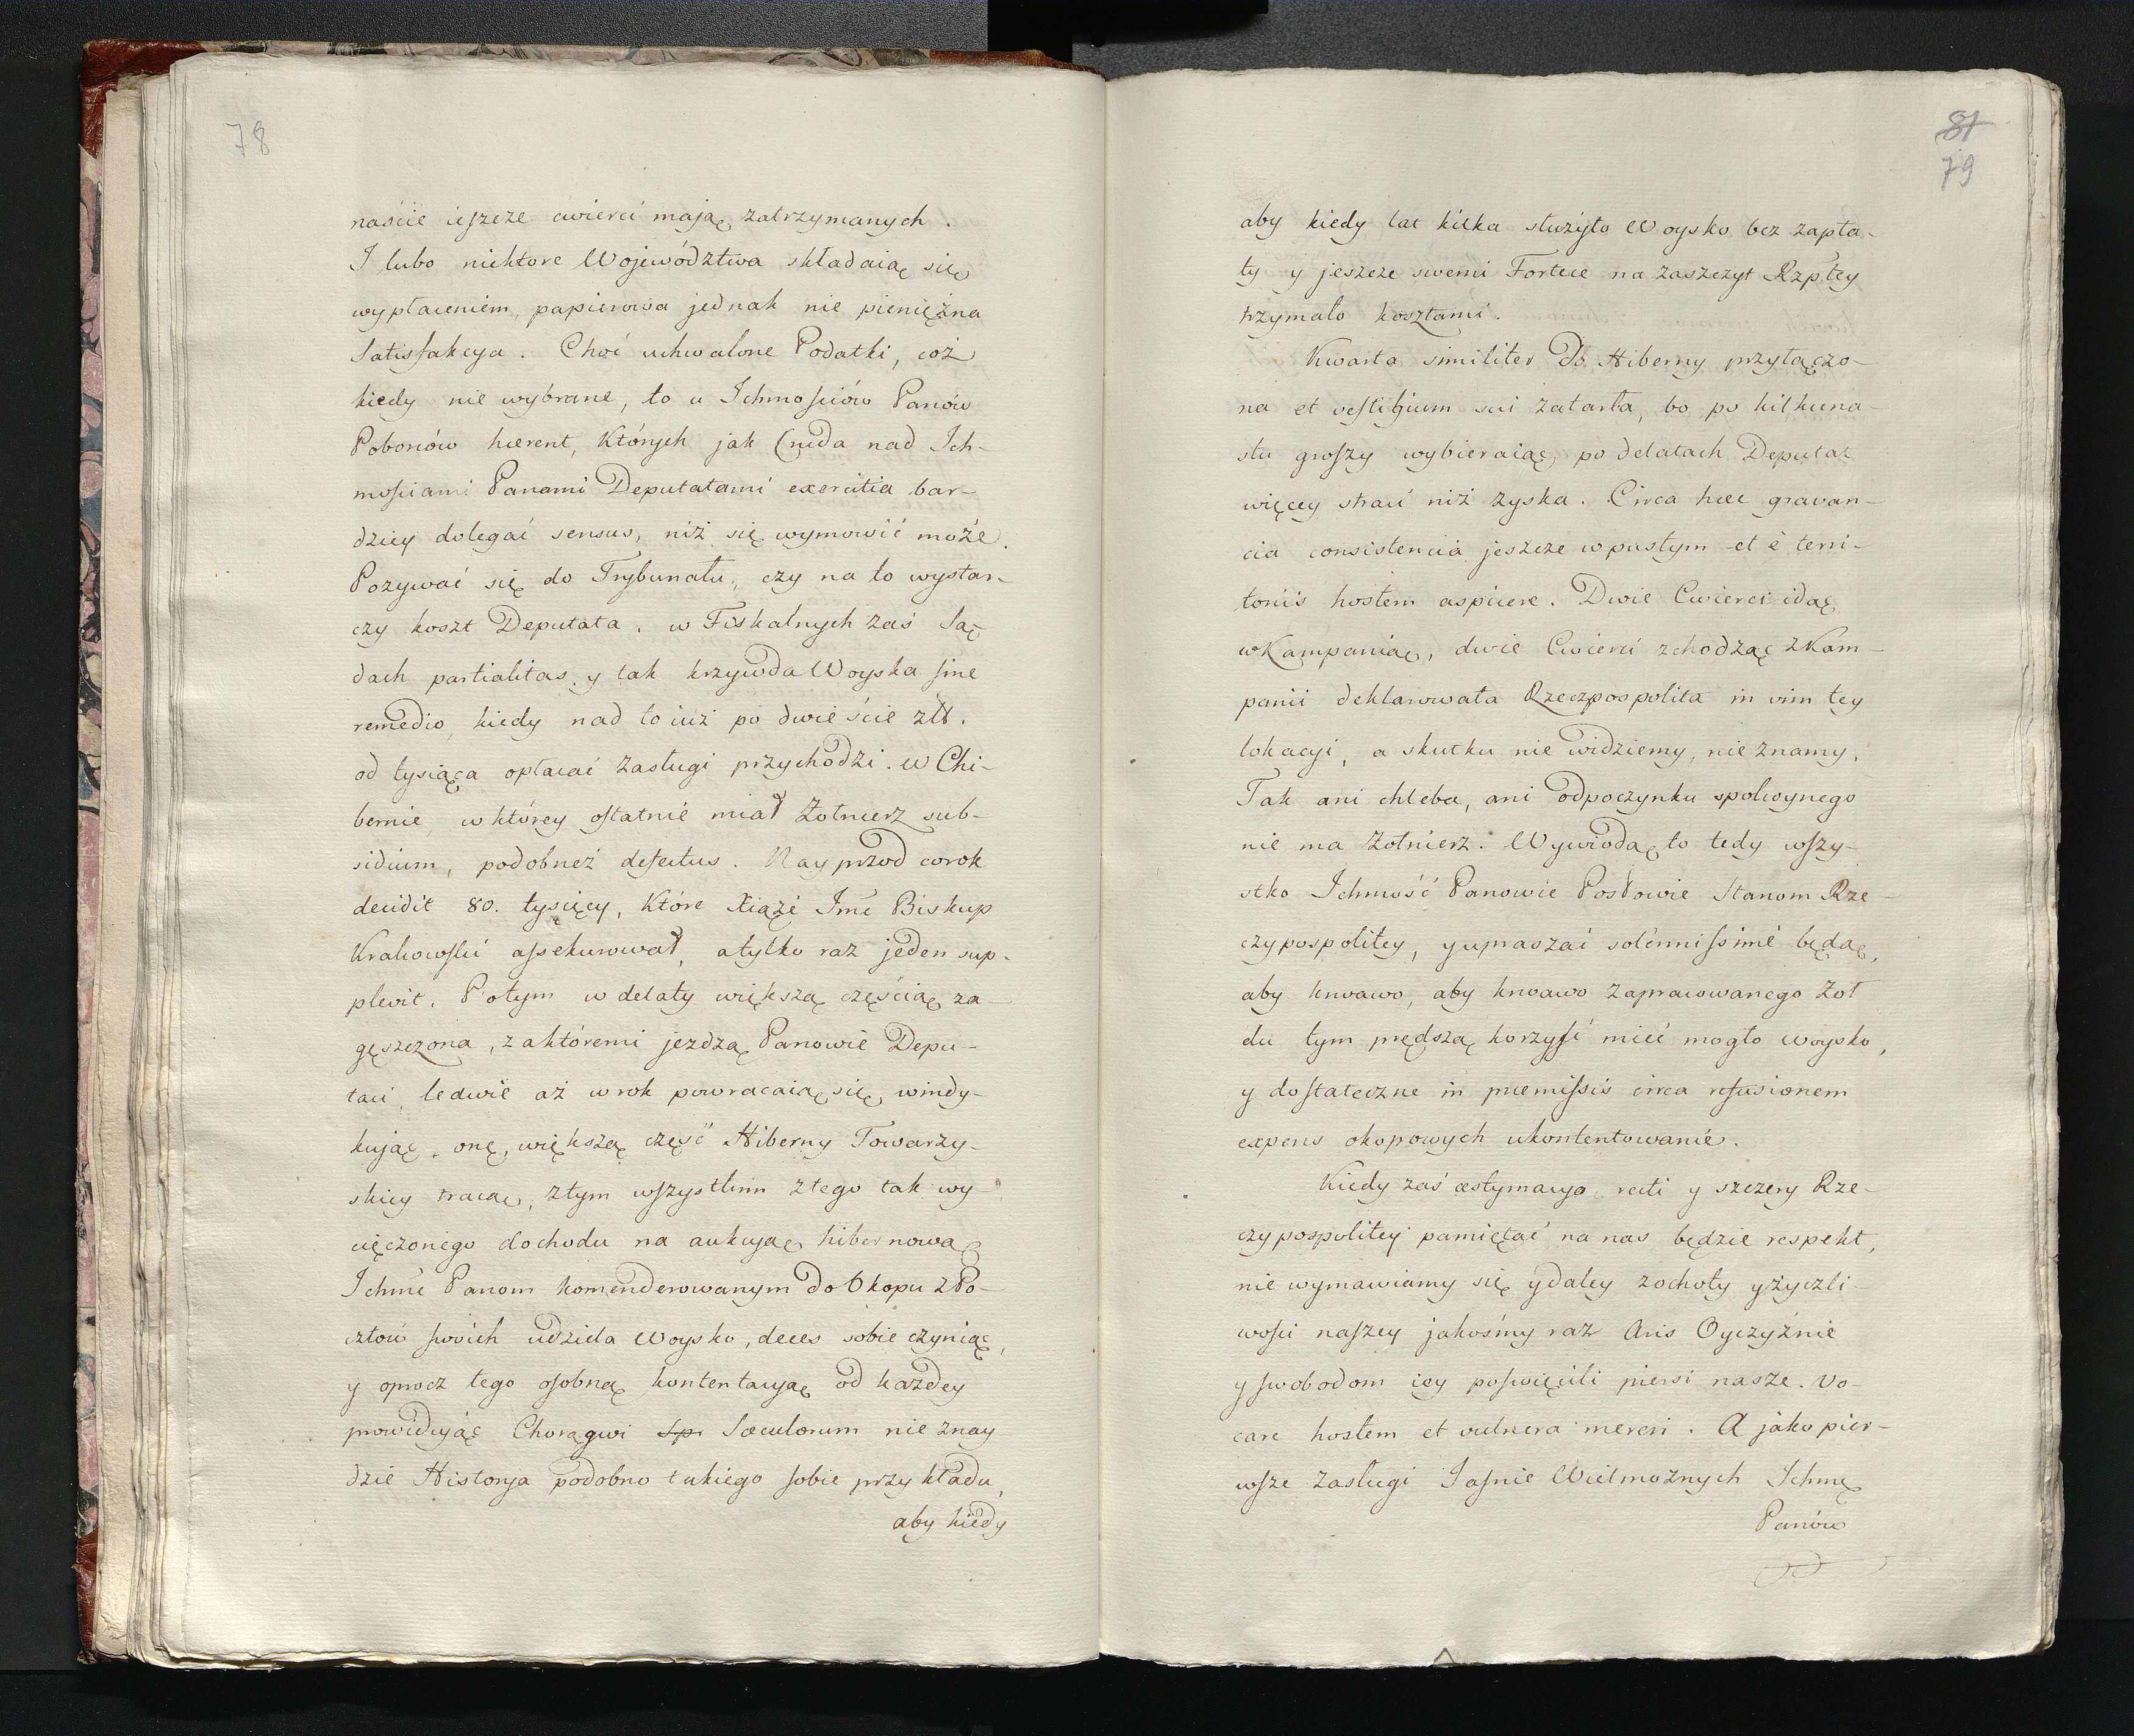 78
naście ieszcze cwierci mają zatrzymanych.
I lubo niektore Wojewódźtwa składaią się
wypłaceniem, papierowa jednak nie pieniężna
Satisfakcya. Choć uchwalone Podatki, coż
kiedy nie wybrane, to u Ichmościów Panów
Poborców hœrent, Których jak Cruda nad Ich-
mościami Panami Deputatami exercitia bar-
dziey dolegać sensus, niż się wymowić może.
Pozywać się do Trybunału, czy na to wystar-
czy koszt Deputata. w Fiskalnych zaś Są-
dach partialitas, y tak krzywda Woyska sine
remedio, kiedy nad to iuż po dwieście złt.
od tysiąca opłacać zasługi przychodzi. w Chi-
bernie, w którey ostatnie miał Żołnierz sub-
sidium, podobneż defectus. Nayprzod corok
decidit 80. tysięcy, Które Xiąże Jmć Biskup
Krakowski assekurował, a tylko raz jeden sup-
plevit. Potym w delaty większą częścią za-
gęszczona, za któremi jezdzą Panowie Depu-
taci, ledwie aż w rok powracaią się, windy-
kując onę, większą część Hiberny Towarzy-
skiey tracą, z tym wszystkim z tego tak wy-
cięczonego dochodu na aukcyą hibernową
Ichmć Panom komenderowanym do Okopu z Po-
cztow swoich udziela Woysko, deces sobie czyniąc,
y oprocz tego osobną kontentacyą od każdey
prowidując Chorągwi sp Sœculorum nie znay
dzie Historya podobno takiego sobie przykładu,
aby kiedy
81
79
aby kiedy lat kilka służyło Woysko bez zapła-
ty y jeszcze swemi Fortece na zaszczyt Rzptey
trzymało kosztami.
Kwarta similiter do Hiberny przyłączo-
na et vestigium sui zatarła, bo po kilkuna-
stu groszy wybieraiąc po delatach Deputat
więcey straci niż zyska. Circa hœc gravan-
cia consistencia jeszcze w pustym et è terri-
toriis hostem aspicere. Dwie Cwierci idąc
w Kampanią, dwie Cwierci zchodząc z Kam-
panii deklarowała Rzeczpospolita in vim tey
lokacyi, a skutku nie widziemy, nie znamy.
Tak ani chleba, ani odpoczynku spokoynego
nie ma Żołnierz. Wywiodą to tedy wszy-
stko Ichmość Panowie Posłowie Stanom Rze-
czypospolitey, y upraszać solennissimè będą,
aby krwawo, aby krwawo zapracowanego Żoł
du tym prędszą korzyść mieć mogło woysko,
y dostateczne in prœmissis circa refusionem
expens okopowych ukontentowanie.
Kiedy zaś œstymacya recti y szczery Rze-
czypospolitey pamiętać na nas będzie respekt,
nie wymawiamy się y daley z ochoty y życzli-
wości naszey jakośmy raz Aris Oyczyźnie
y swobodom iey poświęcili piersi nasze. Vo-
care hostem et vulnera mereri. A jako pier-
wsze zasługi Jaśnie Wielmożnych Ichmę
Panów